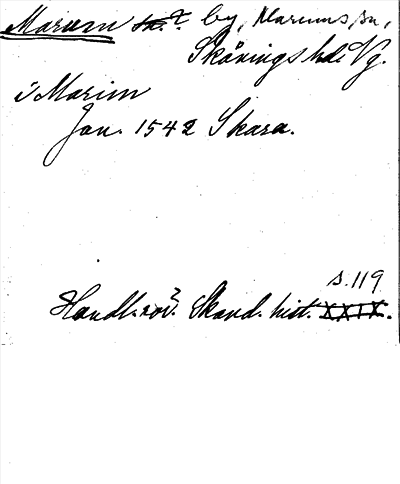 Marum sn.? by, Marums sn,
Skånings hd. Vg.
i Marim
Jan. 1542 Skara.
s. 119
Handl. rör. Skand. hist. XXIX.